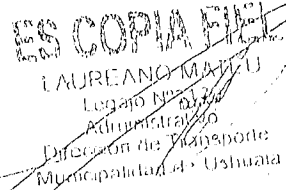 ES COPIA FIEL
LAUREANO
Legajo Nº
Administrativo
Dirección de Transporte
Municipalidad de Ushuaia